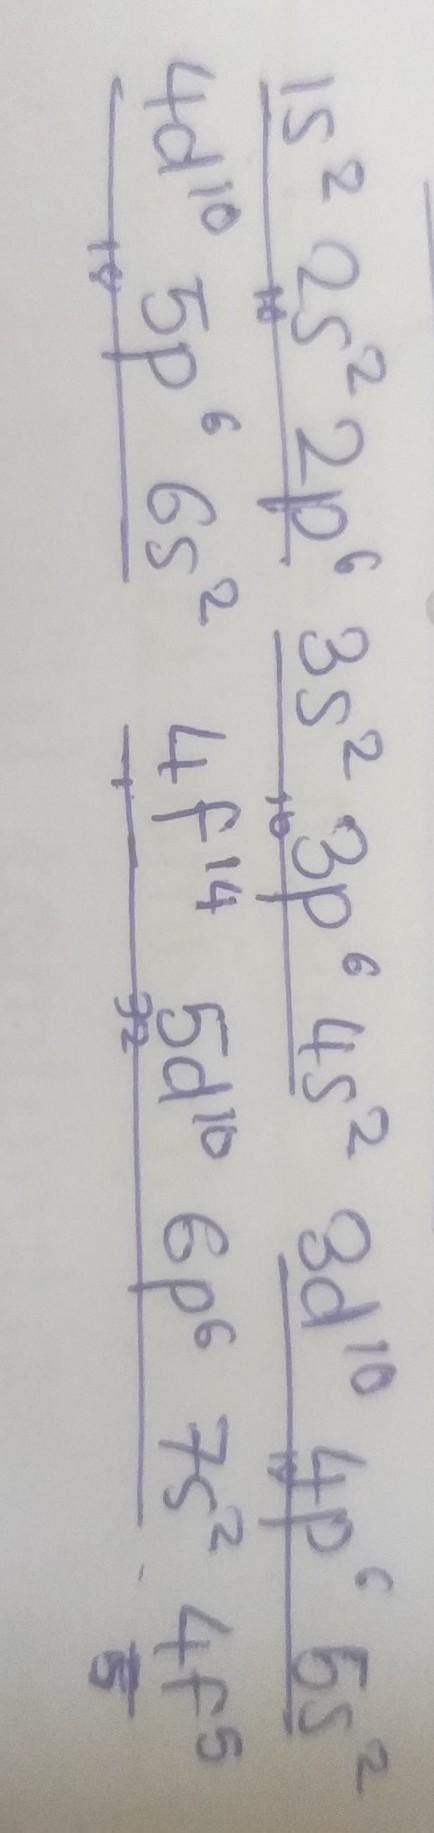 1s² 2s² 2p⁶ 3s² 3p⁶ 4s² 3d¹⁰ 4p⁶ 5s²
10
4d¹⁰ 5p⁶ 6s² 4f¹⁴ 5d¹⁰ 6p⁶ 7s² 4f⁵
32 5